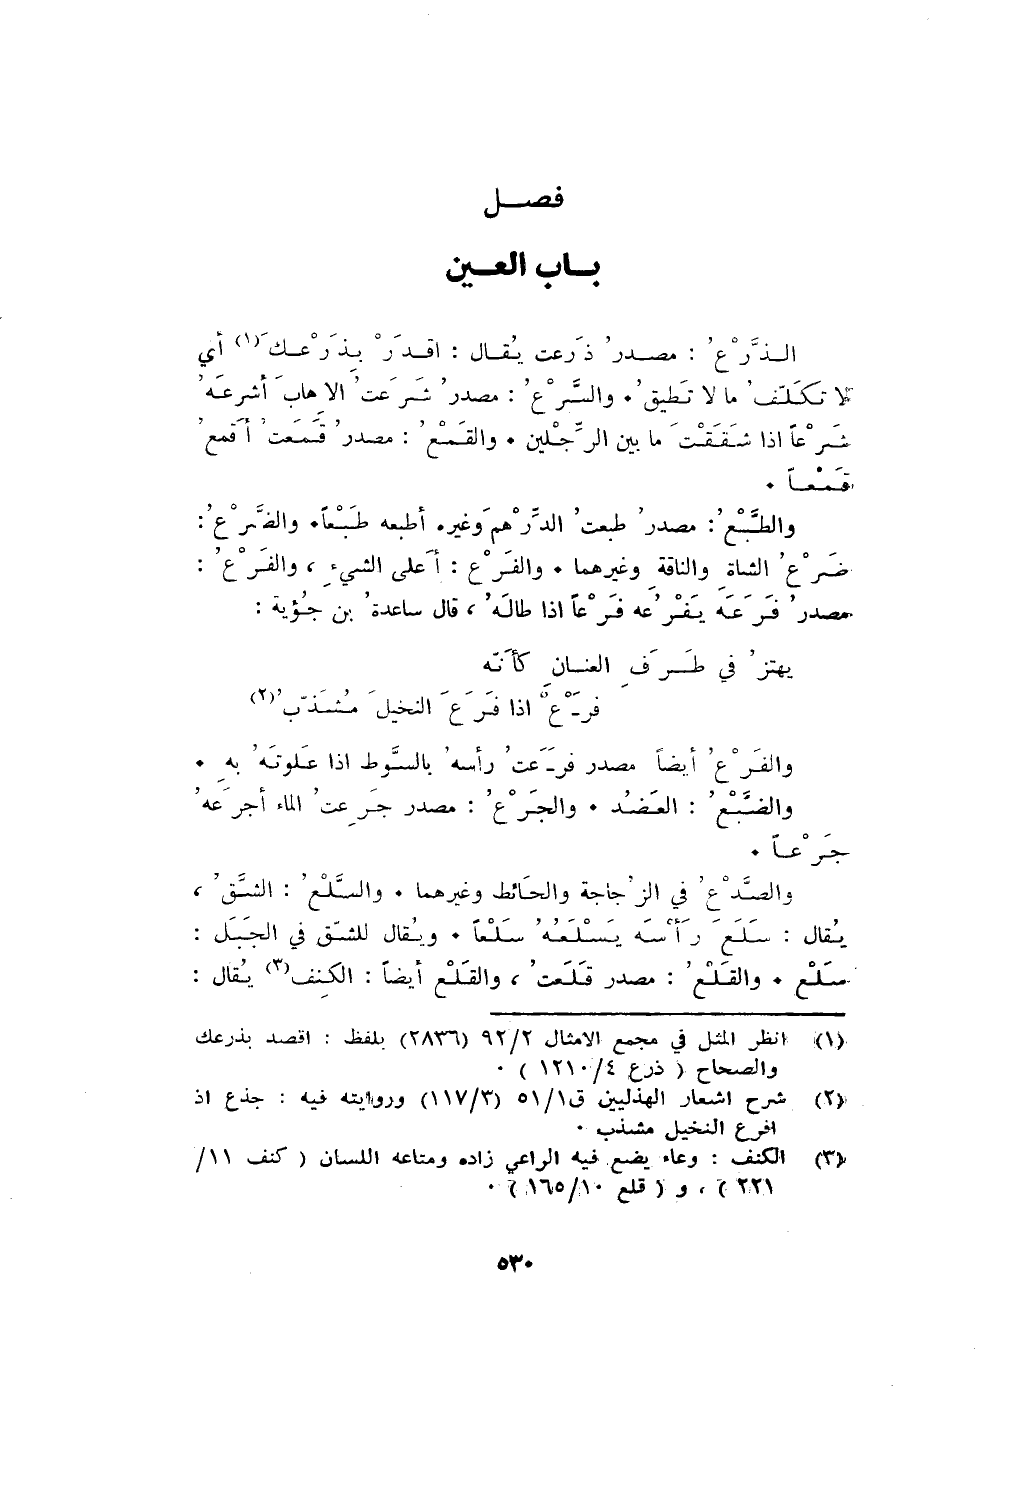 فصل
باب العين
الذَّرْعُ : مصدرُ ذَرَعت يُقال : اقدَرْ بِذَرْعكَ(١) أي
لا تكَلّفُ ما لا تَطيقُ. والشَّرْعُ : مصدرُ شَرَعتُ الاهابَ أشرعَهُ
شَرْعاً اذا شقَقْتَ ما بين الرِّجْلين . والقَمْعُ : مصدرُ قَمَعتُ أقمعُ
قَمْعاً .
والطَّبْعُ : مصدرُ طبعتُ الدِّرْهمَ وغيره أطبعه طَبْعاً . والضَّرْعُ :
ضَرْعُ الشاةِ والناقةِ وغيرهما . والفَرْع : أعلى الشيءِ ، والفَرْعُ :
مصدرُ فَرَعَه يَفْرُعه فَرْعاً اذا طالَهُ ، قال ساعدةُ بن جُؤية :
يهتزُ في طَرَفِ العنانِ كأنّه
فَرْعٌ اذا فَرَعَ النخيلَ مُشذّبُ(٢)
والفَرْعُ أيضاً مصدر فرَعتُ رأسهُ بالسَّوط اذا عَلوتَهُ بهِ .
والضَّبْعُ : العَضُد . والجَرْعُ : مصدر جَرِعتُ الماء أجرَعهُ
جَرْعاً .
والصَّدْعُ في الزُجاجة والحائط وغيرهما . والسَّلْعُ : الشَّقُ ،
يُقال : سَلَعَ رَأسَه يَسْلَعُهُ سَلْعاً . ويُقال للشّق في الجَبَل :
سَلْع . والقَلْعُ : مصدر قَلَعتُ ، والقَلْع أيضاً : الكنِف(٣) يُقال :
(١) انظر المثل في مجمع الامثال ٩٢/٢ (٢٨٣٦) بلفظ : اقصد بذرعك
والصحاح ( ذرع ١٢١٠/٤ ) .
(٢) شرح اشعار الهذليين ق٥١/١ (١١٧/٣) وروايته فيه : جذع اذ
افرع النخيل مشذب .
(٣) الكنف : وعاء يضع فيه الراعي زاده ومتاعه اللسان ( كنف ١١/
٢٢١ ) ، و ( قلع ١٦٥/١٠ ) .
٥٣٠